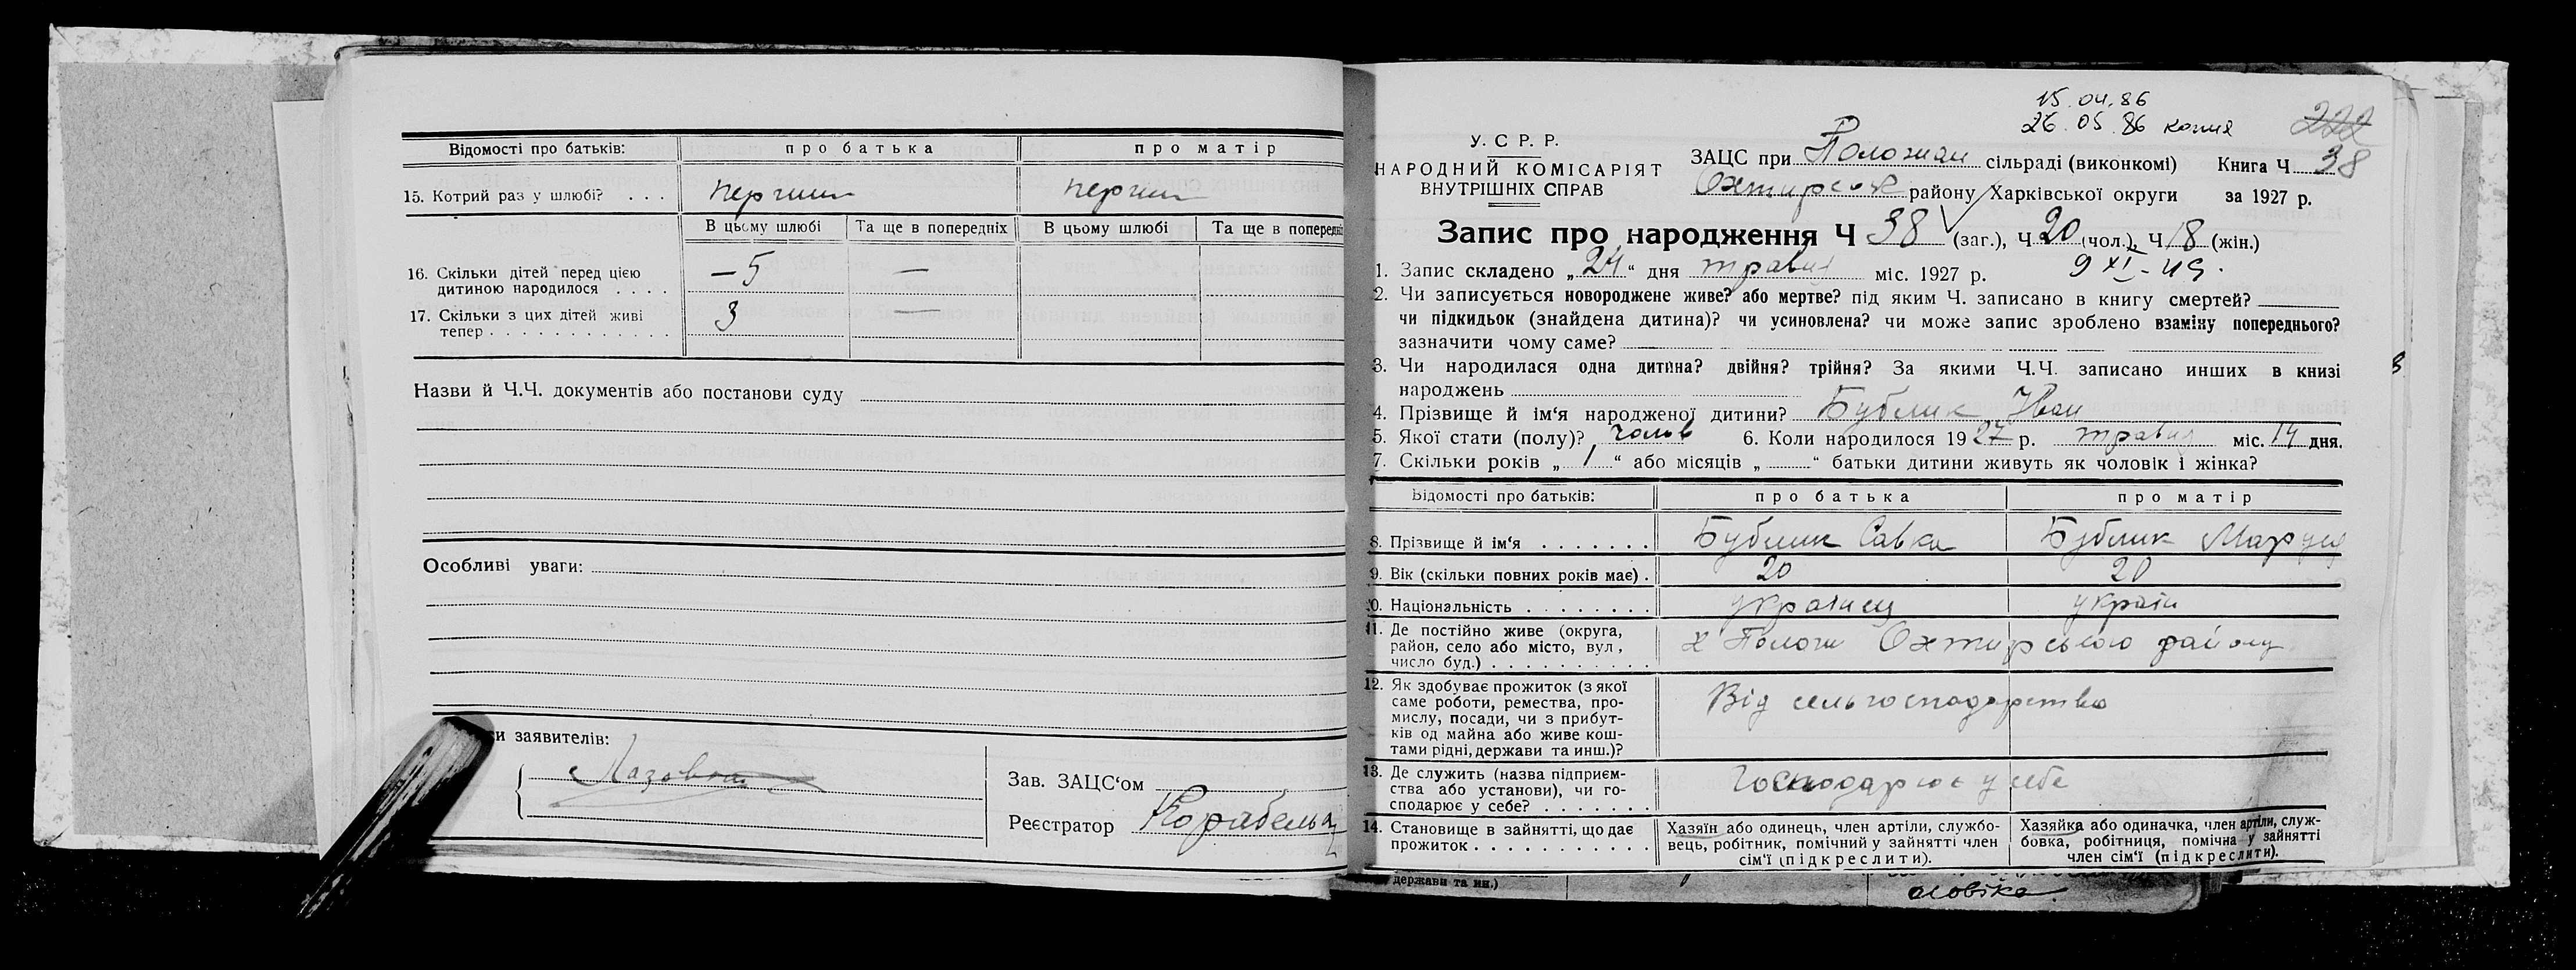 Відомості про батьків: про батька про матір
15. Котрий раз у шлюбі? . . .
В цьому шлюбі Та ще в попередніх В цьому шлюбі Та ще в попередніх
16. Скільки дітей перед цією
дитиною народилося . . . . – 5 —
17. Скільки з цих дітей живі
тепер . . . . . . . . . . . . 3 —
Назви й Ч.Ч. документів або постанови суду
Особливі уваги:
заявителів:
Зав. ЗАЦС‘ом
Реєстратор
15.04.86
26.05.86 копия
222
У. С Р. Р.
НАРОДНИЙ КОМІСАРІЯТ
ВНУТРІШНІХ СПРАВ
ЗАЦС при сільраді (виконкомі) Книга Ч 38
району Харківської округи за 1927 р.
Запис про народження Ч 38 (заг.), Ч 20 (чол.), Ч 18 (жін.)
1. Запис складено „ 24 “ дня травня міс. 1927 р. 9 XI - 49.
2. Чи записується новороджене живе? або мертве? під яким Ч. записано в книгу смертей?
чи підкидьок (знайдена дитина)? чи усиновлена? чи може запис зроблено взаміну попереднього?
зазначити чому саме?
3. Чи народилася одна дитина? двійня? трійня? За якими Ч.Ч. записано инших в книзі
народжень
4. Прізвище й ім‘я народженої дитини? Бублик Іван
5. Якої стати (полу)? чолов 6. Коли народилося 19 27 р. травня міс. 14 дня.
7. Скільки років „ 1 “ або місяців „ “ батьки дитини живуть як чоловік і жінка?
Відомості про батьків: про батька про матір
8. Прізвище й ім‘я . . . . . . . Бублик Савка Бублик Маруся
9. Вік (скільки повних років має) . 20 20
10. Національність . . . . . . . . українец україн
11. Де постійно живе (округа,
район, село або місто, вул,
число буд.) . . . . . . . . . . . х Пологи Охтирського району
12. Як здобуває прожиток (з якої
саме роботи, ремества, про-
мислу, посади, чи з прибут-
ків од майна або живе кош-
тами рідні, держави та инш.)?
Від сельгосподарства
13. Де служить (назва підприєм-
ства або установи), чи го-
сподарює у себе? . . . . . . .
Господарює у себе
14. Становище в зайнятті, що дає
прожиток . . . . . . . . . . .
Хазяїн або одинець, член артіли, службо-
вець, робітник, помічний у зайнятті член
сім‘ї (підкреслити).
Хазяйка або одиначка, член артіли, служ-
бовка, робітниця, помічна у зайнятті
член сім‘ї (підкреслити).
держави та ин.)